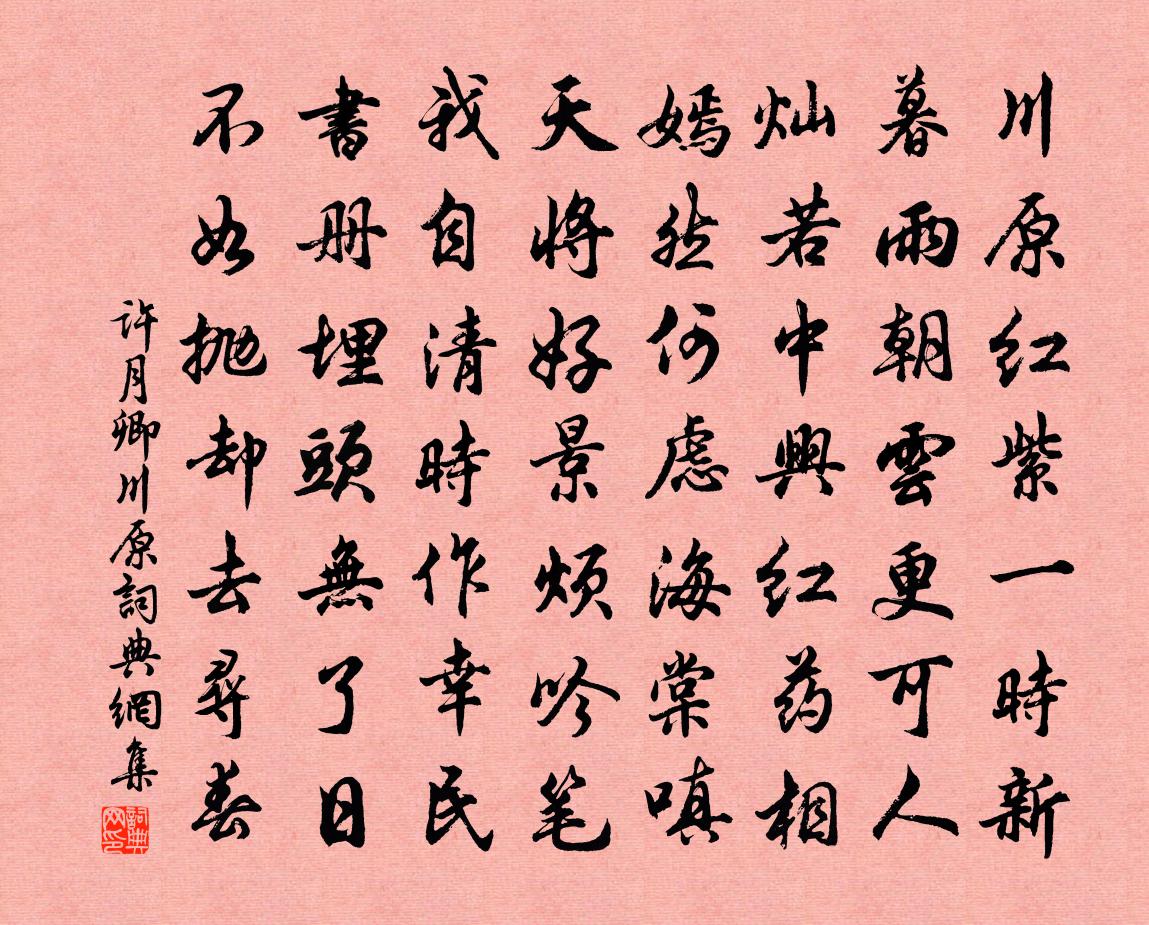 川原红紫一時新
暮雨朝雲更可人
灿若中興红药相
嫣然何慮海棠嗔
天將好景烦吟笔
我自清時作幸民
書册埋頭無了日
不如抛却去尋春
许月卿川原詞典網集
詞典网印